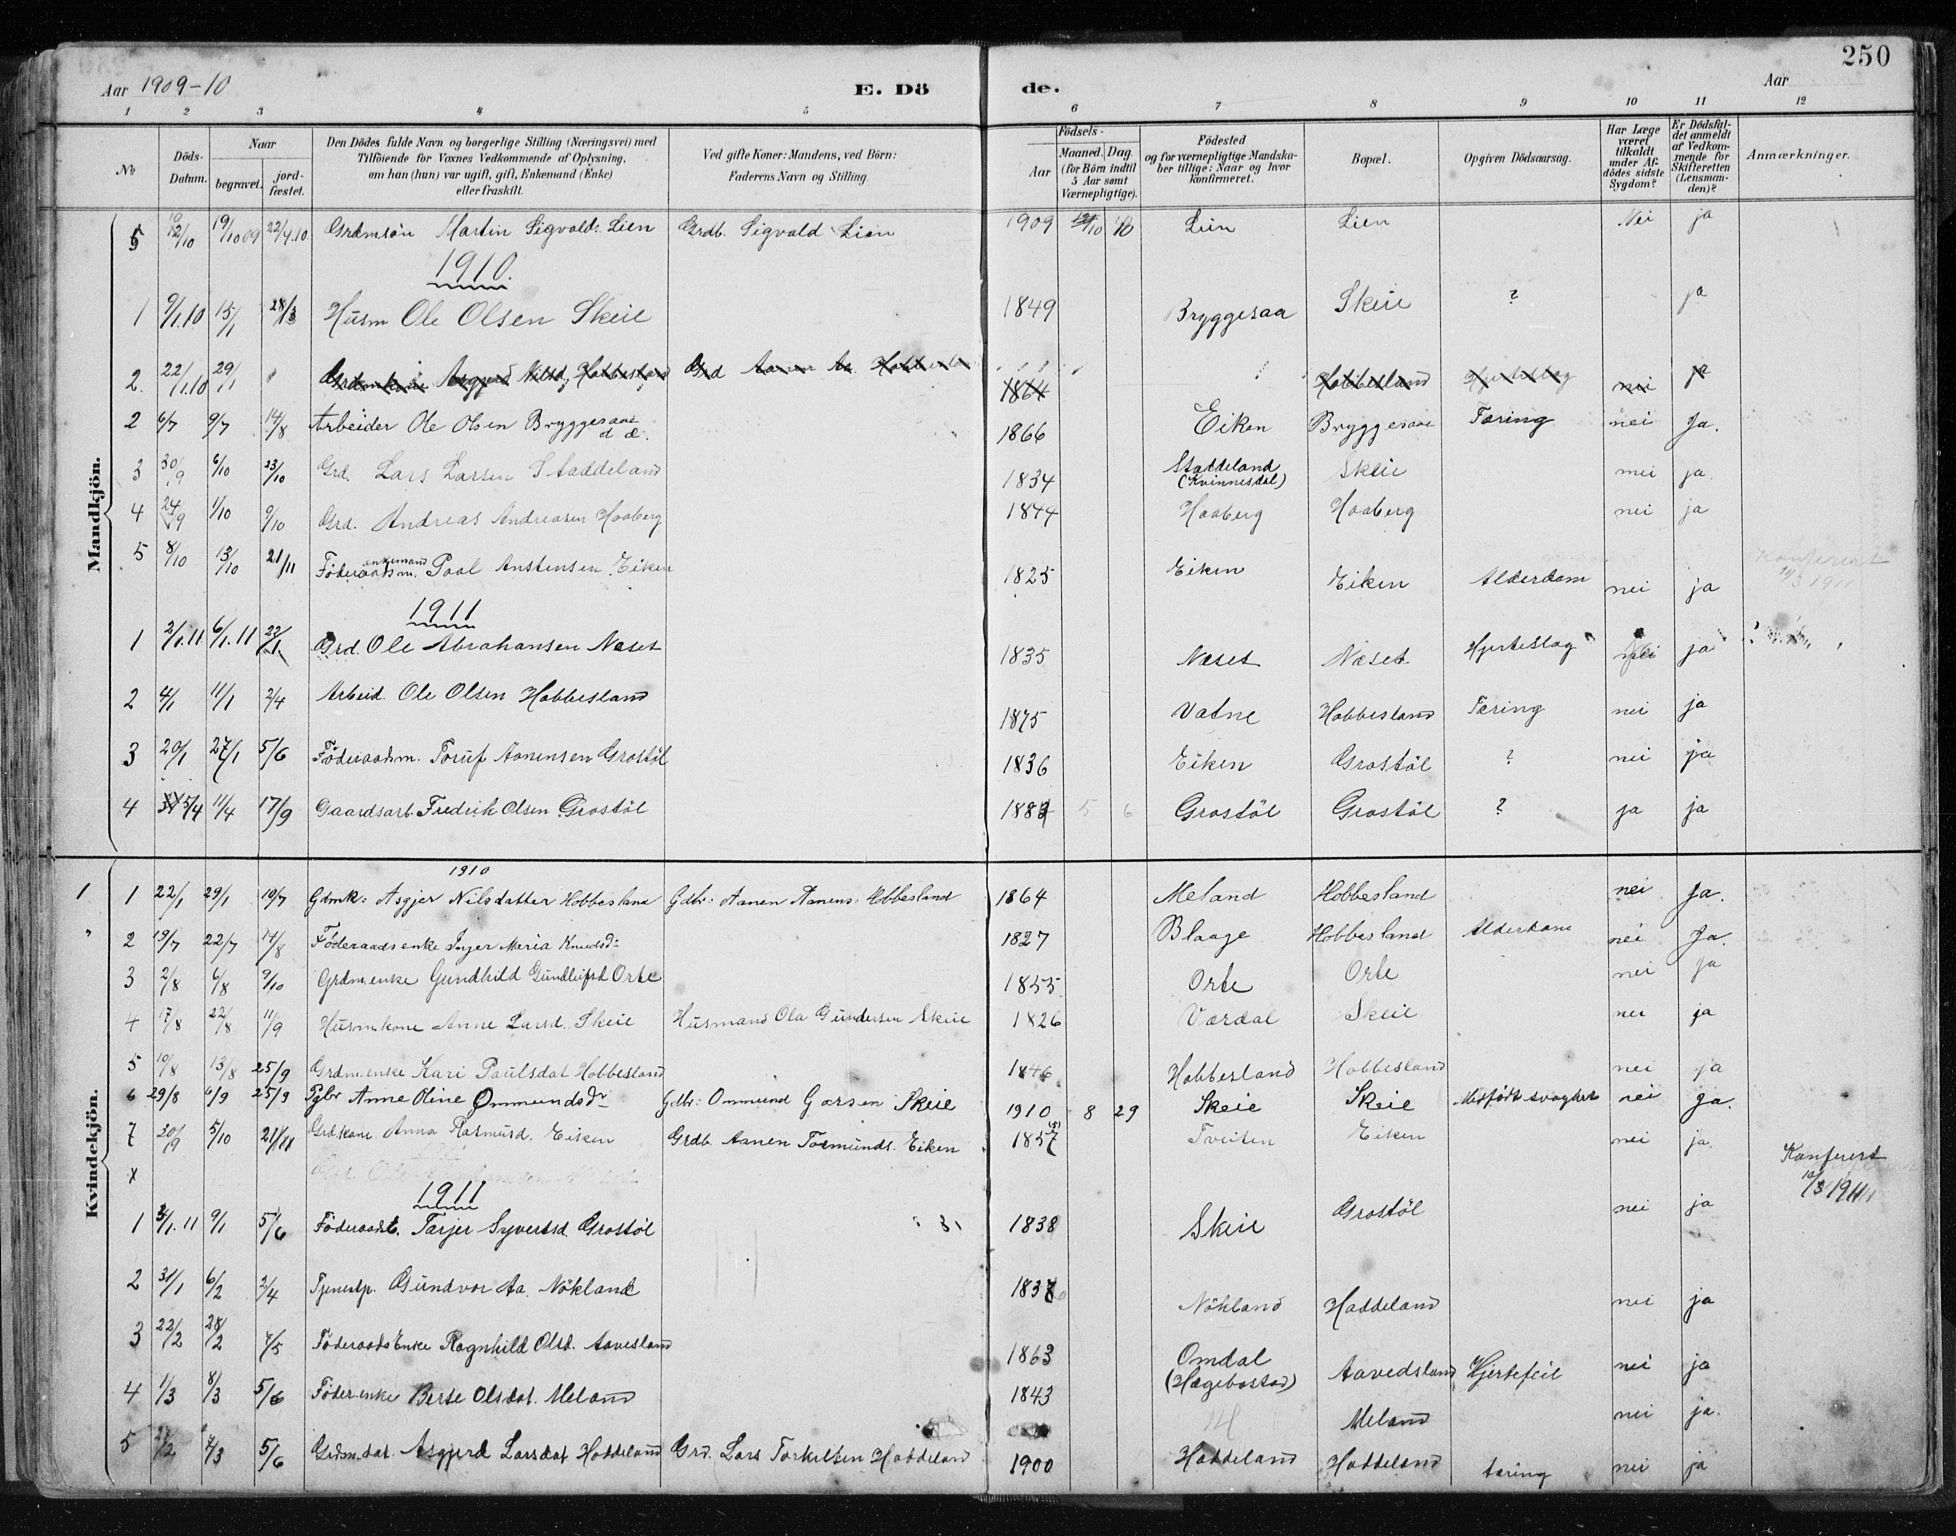 250
Aar 1909-10 E. Dö de. Aar
1 2 3 4 5 6 7 8 9 10 11 12
№ Döds-Datum. Naar begravet. jord-fæstet. Den Dödes fulde Navn og borgerlige Stilling (Næringsvei) med Tilföiende for Voxnes Vedkommende af Oplysning, om han (hun) var ugift, gift, Enkemand (Enke) eller fraskilt. Ved gifte Koner: Mandens, ved Börn: Faderens Navn og Stilling Födsels- Aar Maaned. Dag. (for Börn indtil 5 Aar samt Værnepligtige). Födested og for værnepligtige Mandska-ber tillige: Naar og hvor konfirmeret. Bopæl. Opgiven Dödsaarsag. Har Læge været tilkaldt under Af-dödes sidste Sygdom? Er Dödsfal-det anmeldt af Vedkom-mende for Skifteretten (Lensman-den)? Anmærkninger.
Mandkjön.
5 12/10 19/10 09 22/4.10 Grdmsön Martin Sigvalds. Lien Grdb. Sigvald Lien 1909 10 Lien Lien Nei ja
1910.
1 9/1.10 15/1 28/3 Husm Ole Olsen Skeie 1849 Bryggesaa Skeie ? ja
2. 22/1.10 29/1 Grdmkone Asgjerd Nilsd. Hobbesland Grd Aanen Aa. Hobbesland 1864 Hobbesland Hjerteslag nei ja
2 6/7 9/7 14/8 Arbeider Ole Olsen Bryggesaae d æ. 1866 Eiken Bryggesaae Tæring nei Ja.
3 30/9 6/10 23/10 Grd. Lars Larsen Staddeland 1834 Staddeland (Kvinnesdal) Skeie nei ja
4 24/9 1/10 9/10 Grd. Andreas Andreasen Haaberg 1844 Haaberg Haaberg nei ja
5 8/10 13/10 21/11 Föderaadsm. enkemand Paal Anstensen Eiken 1825 Eiken Eiken Alderdom nei ja Konfereret 10/3 1911
1911
1 2/1.11 6/1.11 22/1 Grd. Ole Abrahansen Næset 1835 Næset Næset Hjerteslag nei ja
2 4/1 11/1 2/4 Arbeid. Ole Olsen Hobbesland 1875 Vatne Hobbesland Tæring nei ja
3 20/1 27/1 5/6 Föderaadsm. Toruf Aanensen Grostöl 1836 Eiken Grostöl ? nei ja
4 5/4 11/4 17/9 Gaardsarb. Fredrik Olsen Grostöl 1884 5 6 Grostöl Grostöl ? ja ja
Kvindekjön.
1910
1 1 22/1 29/1 19/7 Gdmk: Asgjer Nilsdatter Hobbesland Gdbr: Aanen Aanens: Hobbesland 1864 Meland Hobbesland nei Ja.
" 2 19/7 22/7 14/8 Föderaadsenke Inger Maria Knudsdr 1827 Blaage Hobbesland Alderdom nei Ja.
3 2/8 6/8 9/10 Grdm.enke Gundhild Gundleifsd Orte 1855 Orte Orte nei ja
4 17/8 22/8 11/9 Husmkone Anne Larsd. Skeie Husmand Ola Gundersen Skeie 1826 Værdal Skeie nei ja
5 10/8 13/8 25/9 Grdm.enke Kari Paulsdat Hobbesland 1846 Hobbesland Hobbesland nei ja
6 29/8 6/9 25/9 Pgbr Anne Oline Ommundsdr Gdbr: Ommund Garsen Skeie 1910 8 29 Skeie Skeie Medfödt svaghet nei Ja.
7 30/9 5/10 21/11 Grdkone Anna Rasmusd. Eiken Grdb. Aanen Tormunds. Eiken 1857 Tveiten Eiken nei ja.
x
1911 Konfereret 10/3 1911
1 3/1.11 9/1 5/6 Föderaadsk. Tarjer Syvertsd. Grostöl 1838 Skeie Grostöl nei ja
2 31/1 6/2 2/4 Tjenestp. Gundvor Aa. Nökland 1836 Nökland Haddeland nei ja
3 22/2 28/2 7/5 Föderaadsenke Ragnhild Olsd. Aavesland 1863 Omdal (Hægebostad) Aavedsland Hjertefeil nei ja
4 1/3 8/3 5/6 Föder.enke Berte Olsdat. Meland 1843 M Meland nei ja.
5 27/2 7/3 5/6 Grdmdat. Asgjerd Larsdat Haddeland Grd. Lars Torkelsen Haddeland 1900 Haddeland Haddeland tæring nei ja